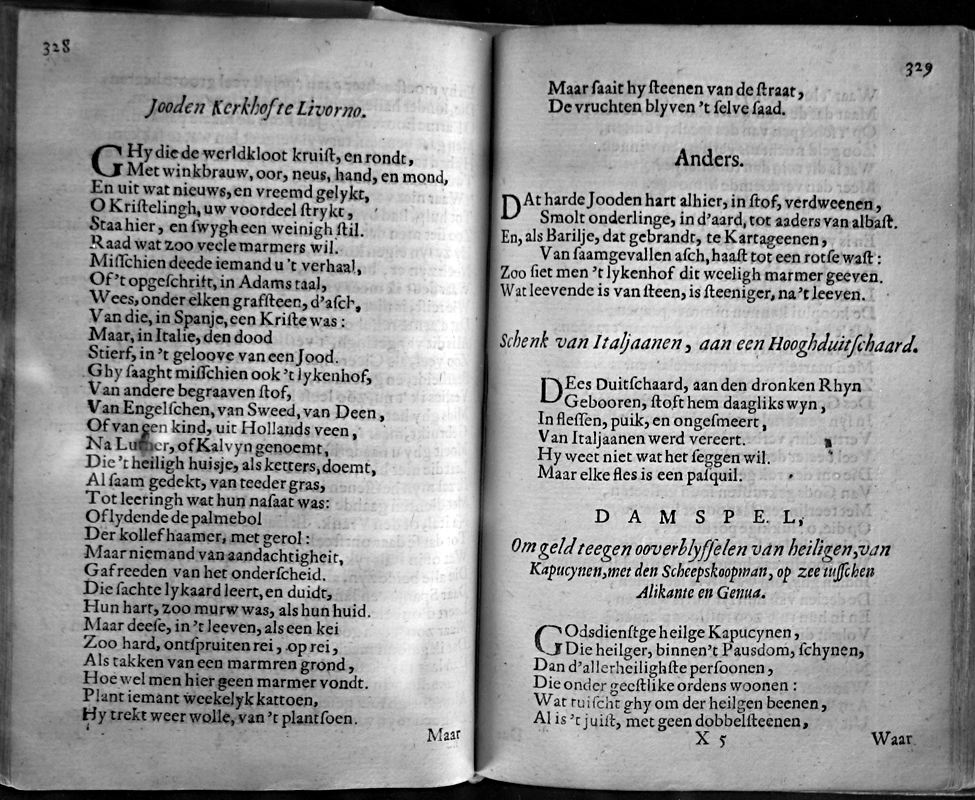 328
Jooden Kerkhof te Livorno.
GHy die de werldkloot kruiſt, en rondt,
Met winkbrauw, oor, neus, hand, en mond,
En uit wat nieuws, en vreemd gelykt,
O Kriſtelingh, uw voordeel ſtrykt,
Staa hier, en ſwygh een weinigh ſtil.
Raad wat zoo veele marmers wil.
Miſſchien deede iemand u 't verhaal,
Of 't opgeſchrift, in Adams taal,
Wees, onder elken grafſteen, d'aſch,
Van die, in Spanje, een Kriſte was:
Maar, in Italie, den dood
Stierf, in 't geloove van een Jood.
Ghy ſaaght miſſchien ook 't lykenhof,
Van andere begraaven ſtof,
Van Engelſchen, van Sweed, van Deen,
Of van een kind, uit Hollands veen,
Na Luther, of Kalvyn genoemt,
Die 't heiligh huisje, als ketters, doemt,
Al ſaam gedekt, van teeder gras,
Tot leeringh wat hun naſaat was:
Of lydende de palmebol
Der kollefhaamer, met gerol:
Maar niemand van aandachtigheit,
Gaf reeden van het onderſcheid.
Die ſachte lykaard leert, en duidt,
Hun hart, zoo murw was, als hun huid.
Maar deeſe, in 't leeven, als een kei
Zoo hard, ontſpruiten rei, op rei,
Als takken van een marmren grond,
Hoe wel men hier geen marmer vondt.
Plant iemant weekelyk kattoen,
Hy trekt weer wolle, van 't plantſoen.
Maar
329
Maar ſaait hy ſteenen van de ſtraat,
De vruchten blyven 't ſelve ſaad.
Anders.
DAt harde Jooden hart alhier, in ſtof, verdweenen,
Smolt onderlinge, in d'aard, tot aaders van albaſt.
En, als Barilje, dat gebrandt, te Kartageenen,
Van ſaamgevallen aſch, haaſt tot een rotſe waſt:
Zoo ſiet men 't lykenhof dit weeligh marmer geeven.
Wat leevende is van ſteen, is ſteeniger, na 't leeven.
Schenk van Italjaanen, aan een Hooghduitſchaard.
DEes Duitſchaard, aan den dronken Rhyn
Gebooren, ſtoft hem daagliks wyn,
In fleſſen, puik, en ongeſmeert,
Van Italjaanen werd vereert.
Hy weet niet wat het ſeggen wil.
Maar elke fles is een paſquil.
DAMSPEL,
Om geld teegen ooverblyfſelen van heiligen, van
Kapucynen, met den Scheepskoopman, op zee tuſſchen
Alikante en Genua.
GOdsdienſtge heilge Kapucynen,
Die heilger, binnen 't Pausdom, ſchynen,
Dan d'allerheilighſte perſoonen,
Die onder geeſtlike ordens woonen:
Wat ruiſcht ghy om der heilgen beenen,
Al is 't juiſt, met geen dobbelſteenen,
X 5
Waar